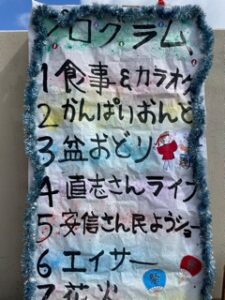 プログラム
1 食事&カラオケ
2 かんぱいおんど
3 盆おどり
4 直志さんライブ
5 安信さん民ようショー
6 エイサー
7 花火